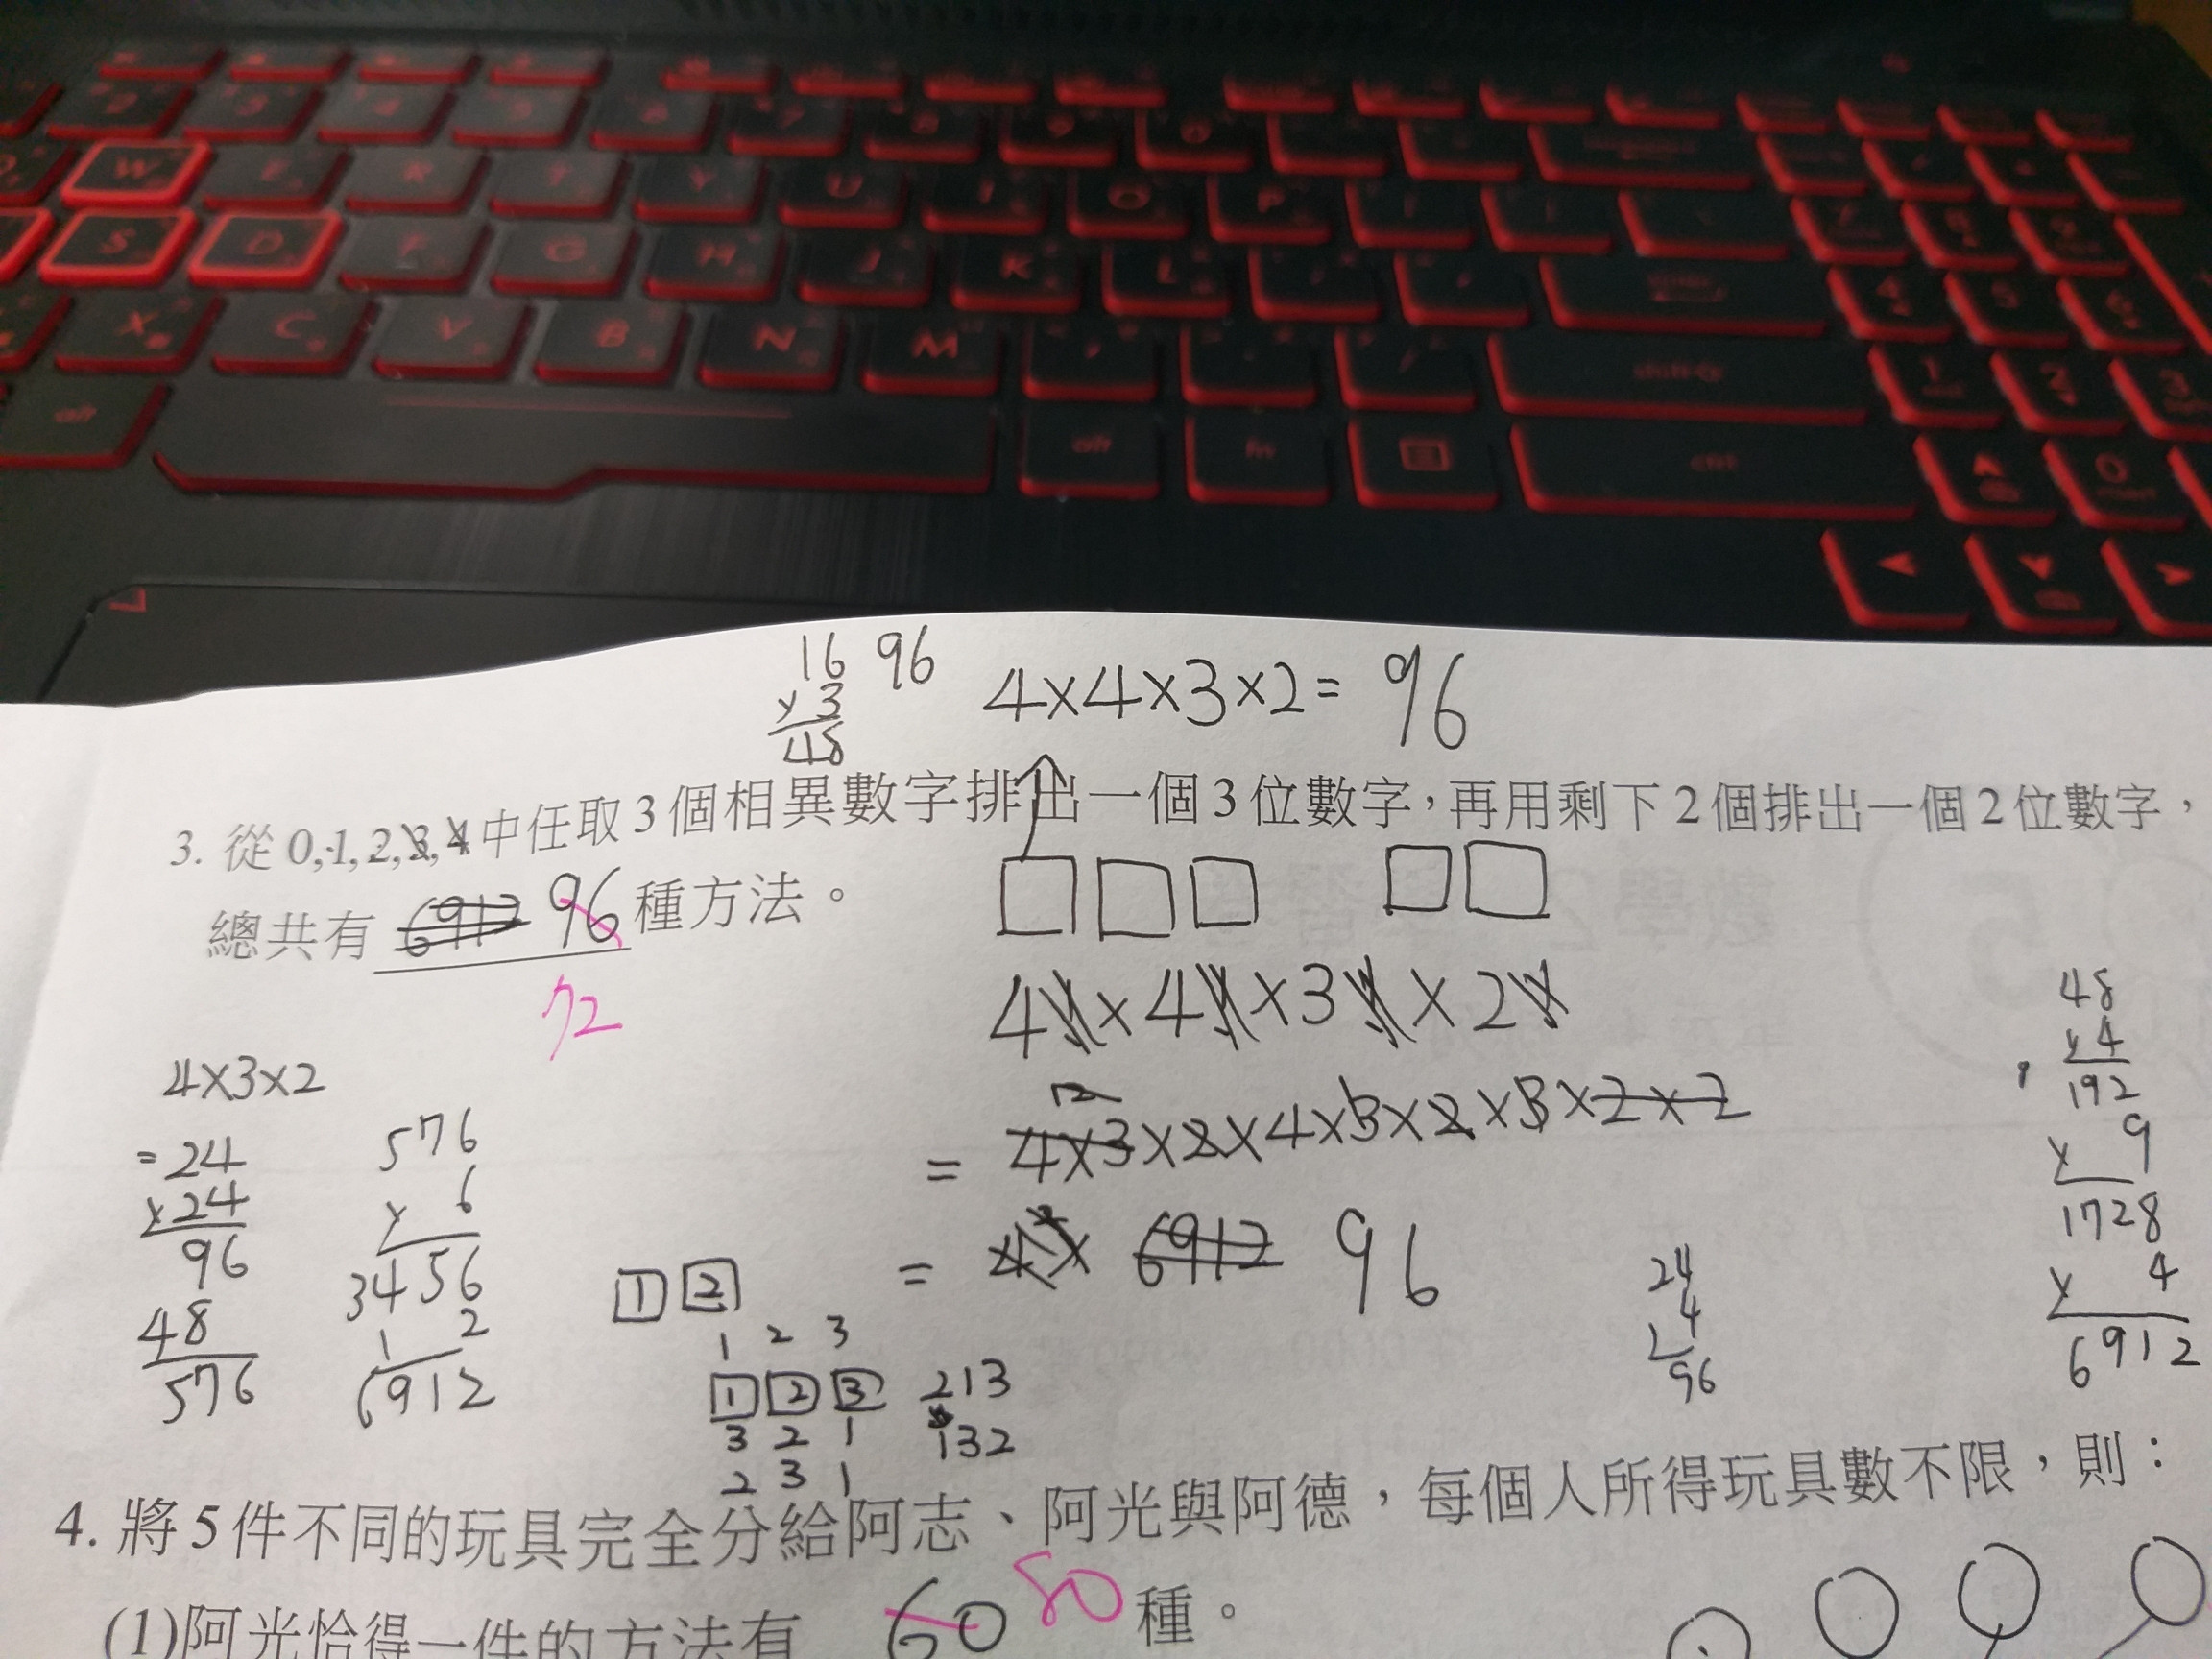 W E R T Y U I O P
S D F G H J K L
X C V B N M
alt alt fn ctrl
16 96 4×4×3×2= 96
× 3
48
3. 從 0,1,2,3,4 中任取 3 個相異數字排出一個 3 位數字，再用剩下 2 個排出一個 2 位數字，
總共有 6912 96 種方法。
72
4 × 4 × 3 × 2
4×3×2
=24
×24
96
48
576
576
× 6
3456
2
6912
12
= 4×3×2×4×3×2×3×2×2
= 4× 6912 96
48
×4
192
× 9
1728
× 4
6912
24
4
96
1 2
1 2 3
1 2 3 213
3 2 1 132
2 3 1
4. 將 5 件不同的玩具完全分給阿志、阿光與阿德，每個人所得玩具數不限，則：
(1)阿光恰得一件的方法有 60 80 種。